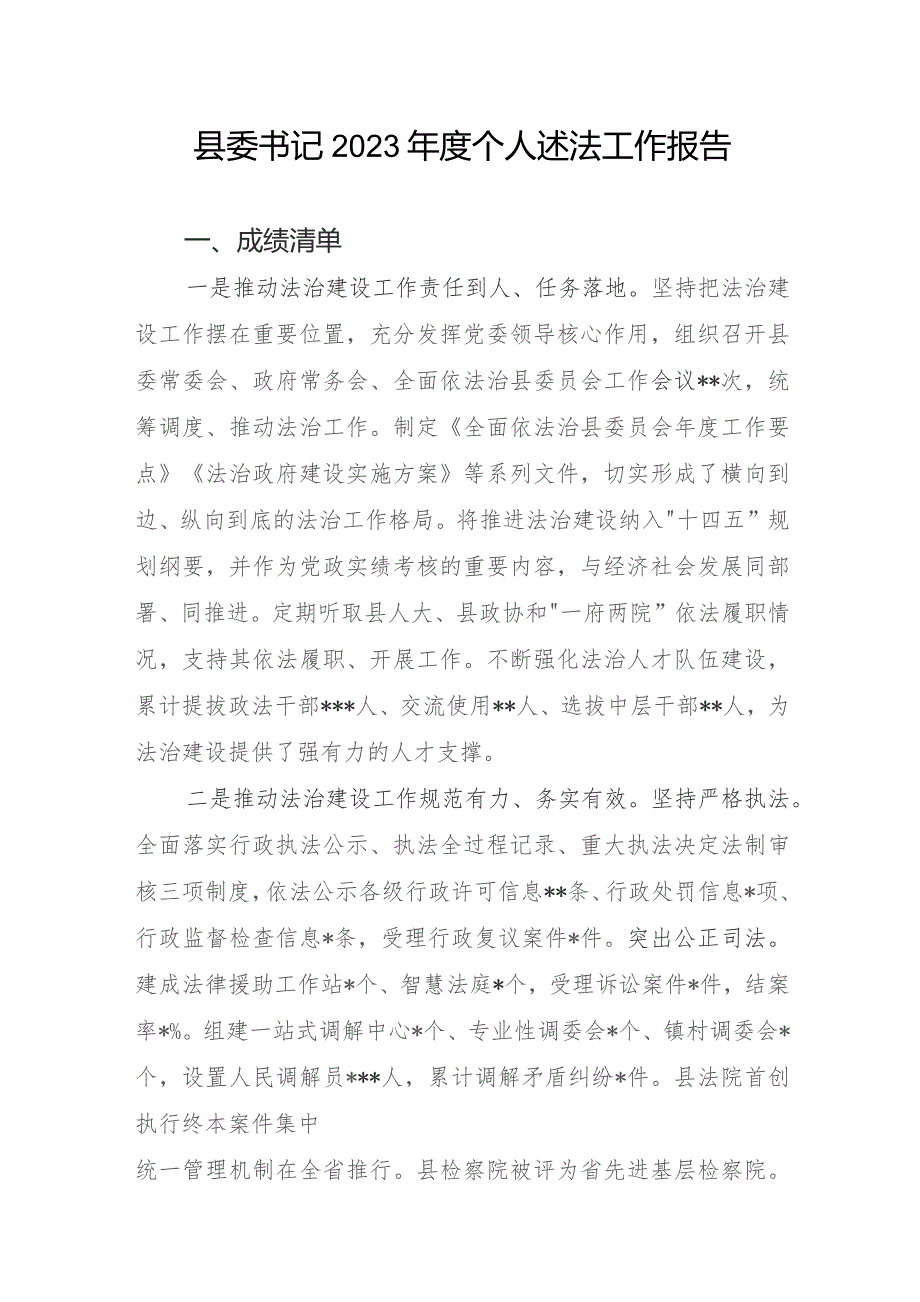 县委书记2023年度个人述法工作报告
一、成绩清单
一是推动法治建设工作责任到人、任务落地。坚持把法治建
设工作摆在重要位置，充分发挥党委领导核心作用，组织召开县
委常委会、政府常务会、全面依法治县委员会工作会议**次，统
筹调度、推动法治工作。制定《全面依法治县委员会年度工作要
点》《法治政府建设实施方案》等系列文件，切实形成了横向到
边、纵向到底的法治工作格局。将推进法治建设纳入"十四五”规
划纲要，并作为党政实绩考核的重要内容，与经济社会发展同部
署、同推进。定期听取县人大、县政协和"一府两院”依法履职情
况，支持其依法履职、开展工作。不断强化法治人才队伍建设，
累计提拔政法干部***人、交流使用**人、选拔中层干部**人，为
法治建设提供了强有力的人才支撑。
二是推动法治建设工作规范有力、务实有效。坚持严格执法。
全面落实行政执法公示、执法全过程记录、重大执法决定法制审
核三项制度，依法公示各级行政许可信息**条、行政处罚信息*项、
行政监督检查信息*条，受理行政复议案件*件。突出公正司法。
建成法律援助工作站*个、智慧法庭*个，受理诉讼案件*件，结案
率*%。组建一站式调解中心*个、专业性调委会*个、镇村调委会*
个，设置人民调解员***人，累计调解矛盾纠纷*件。县法院首创
执行终本案件集中
统一管理机制在全省推行。县检察院被评为省先进基层检察院。